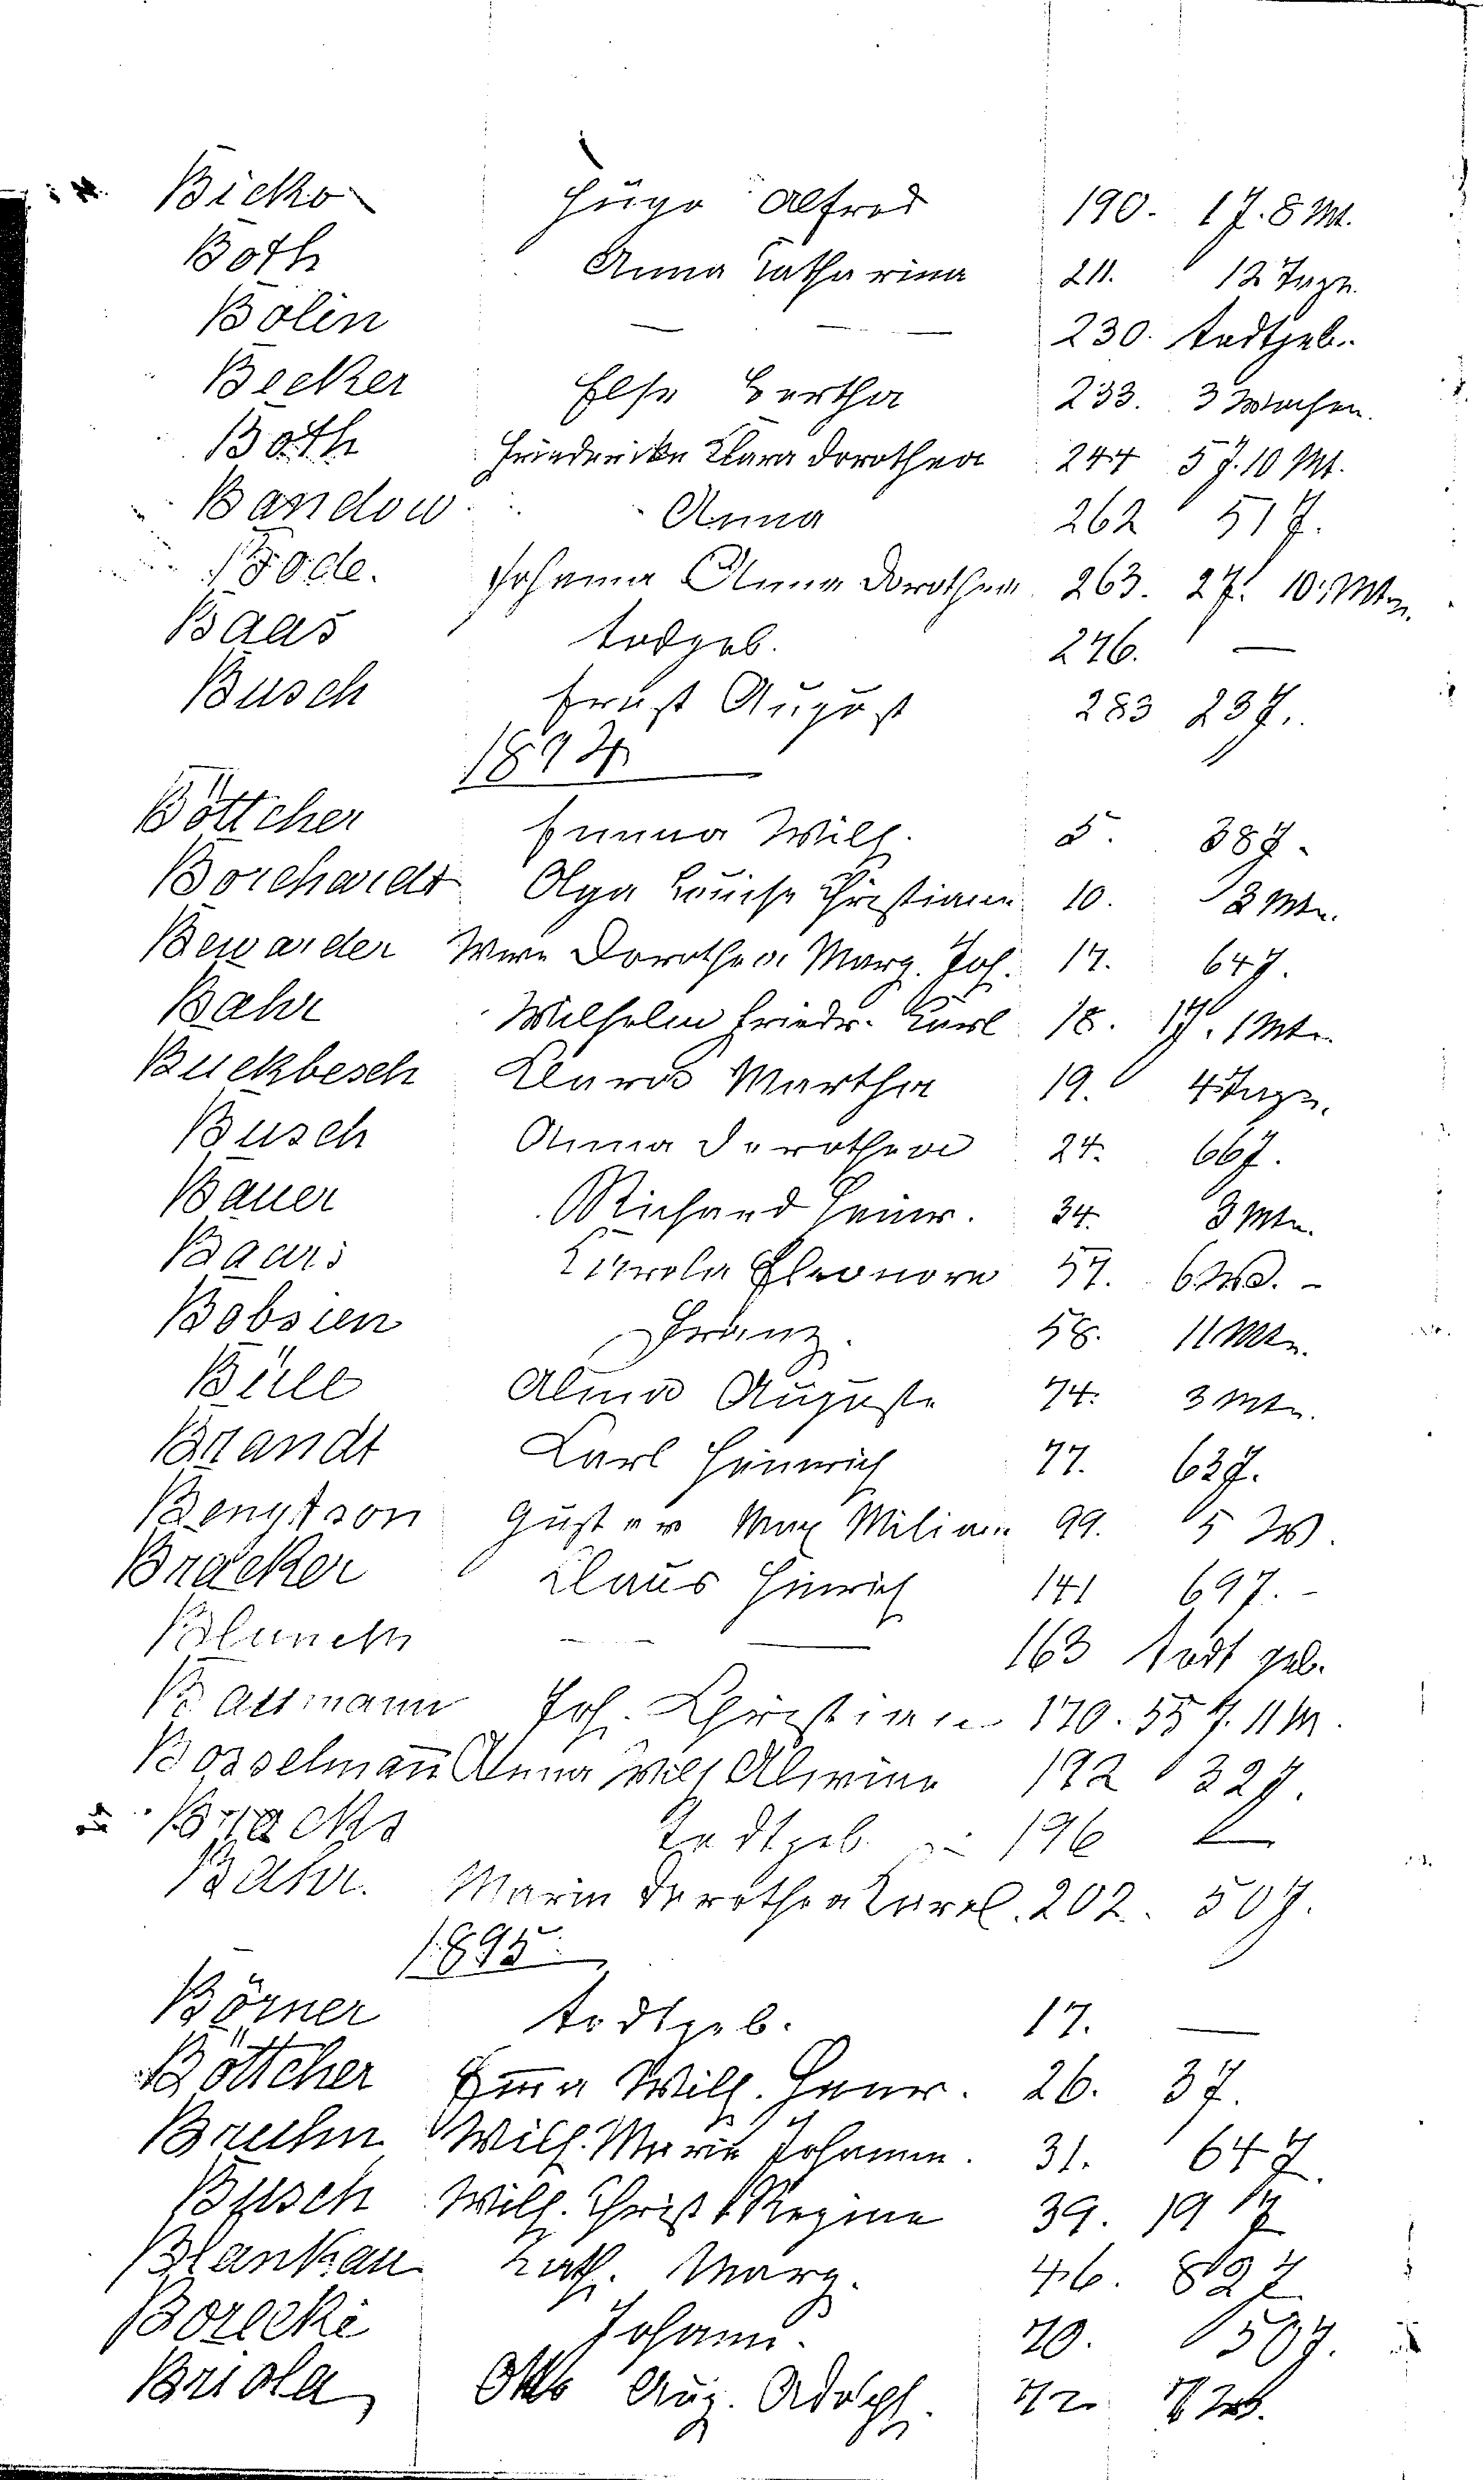 Bicko Hugo Alfred 190. 1 J. 8 Mt.
Both Anna Catharina 211. 12 Tage.
Bolin — — — 230. todtgeb..
Becker Else Bertha 233. 3 Wochen.
Both Friederike Clara Dorothea 244 5 J. 10 Mt.
Bandow Anna 262 51 J.
Bode. Johanna Anna Dorothea 263. 2 J. 10 Mte.
Baas todgeb. 276. —
Busch Ernst August 283 23 J.
1894
Böttcher Emma Wilh. 5. 38 J.
Borchardt Olga Louise Christiane 10. 3 Mte.
Bewarder Wwe Dorothea Marg. Joh. 17. 64 J.
Bahr Wilhelm Friedr. Karl 18. 1 J. 1 Mt.
Buckbesch Clara Martha 19. 4 Tage.
Busch Anna Dorothea 24. 66 J.
Bauer Richard Heinr. 34. 3 Mte.
Baars Carola Eleonore 57. 6 Wo. -
Bobsien Franz. 58. 11 Mte.
Büll Alma Auguste 74. 3 Mte.
Brandt Carl Heinrich 77. 63 J.
Bengtson Gustav Max Milian 99. 5 W.
Bracker Claus Hinrich 141 69 J. -
Blunck — — 163 todt geb.
Bassmann Joh. Christian 170. 55 J. 11 M.
Bosselman̄ Anna Wilh Alwine 192 32 J.
Bracks Todtgeb 196 —
Bahr. Maria Dorothea Karol. 202. 50 J.
1895.
Börner todtgeb. 17. —
Böttcher Em̄a Wilh. Henr. 26. 3 J.
Bruhn Wilh. Marie Johanne. 31. 64 J.
Busch Wilh. Christ Regine 39. 19 J
Blankau Kath. Marg. 46. 82 J
Borecki Johann. 70. 50 J.
Briola Otto Aug. Adolph. 72 7 W.